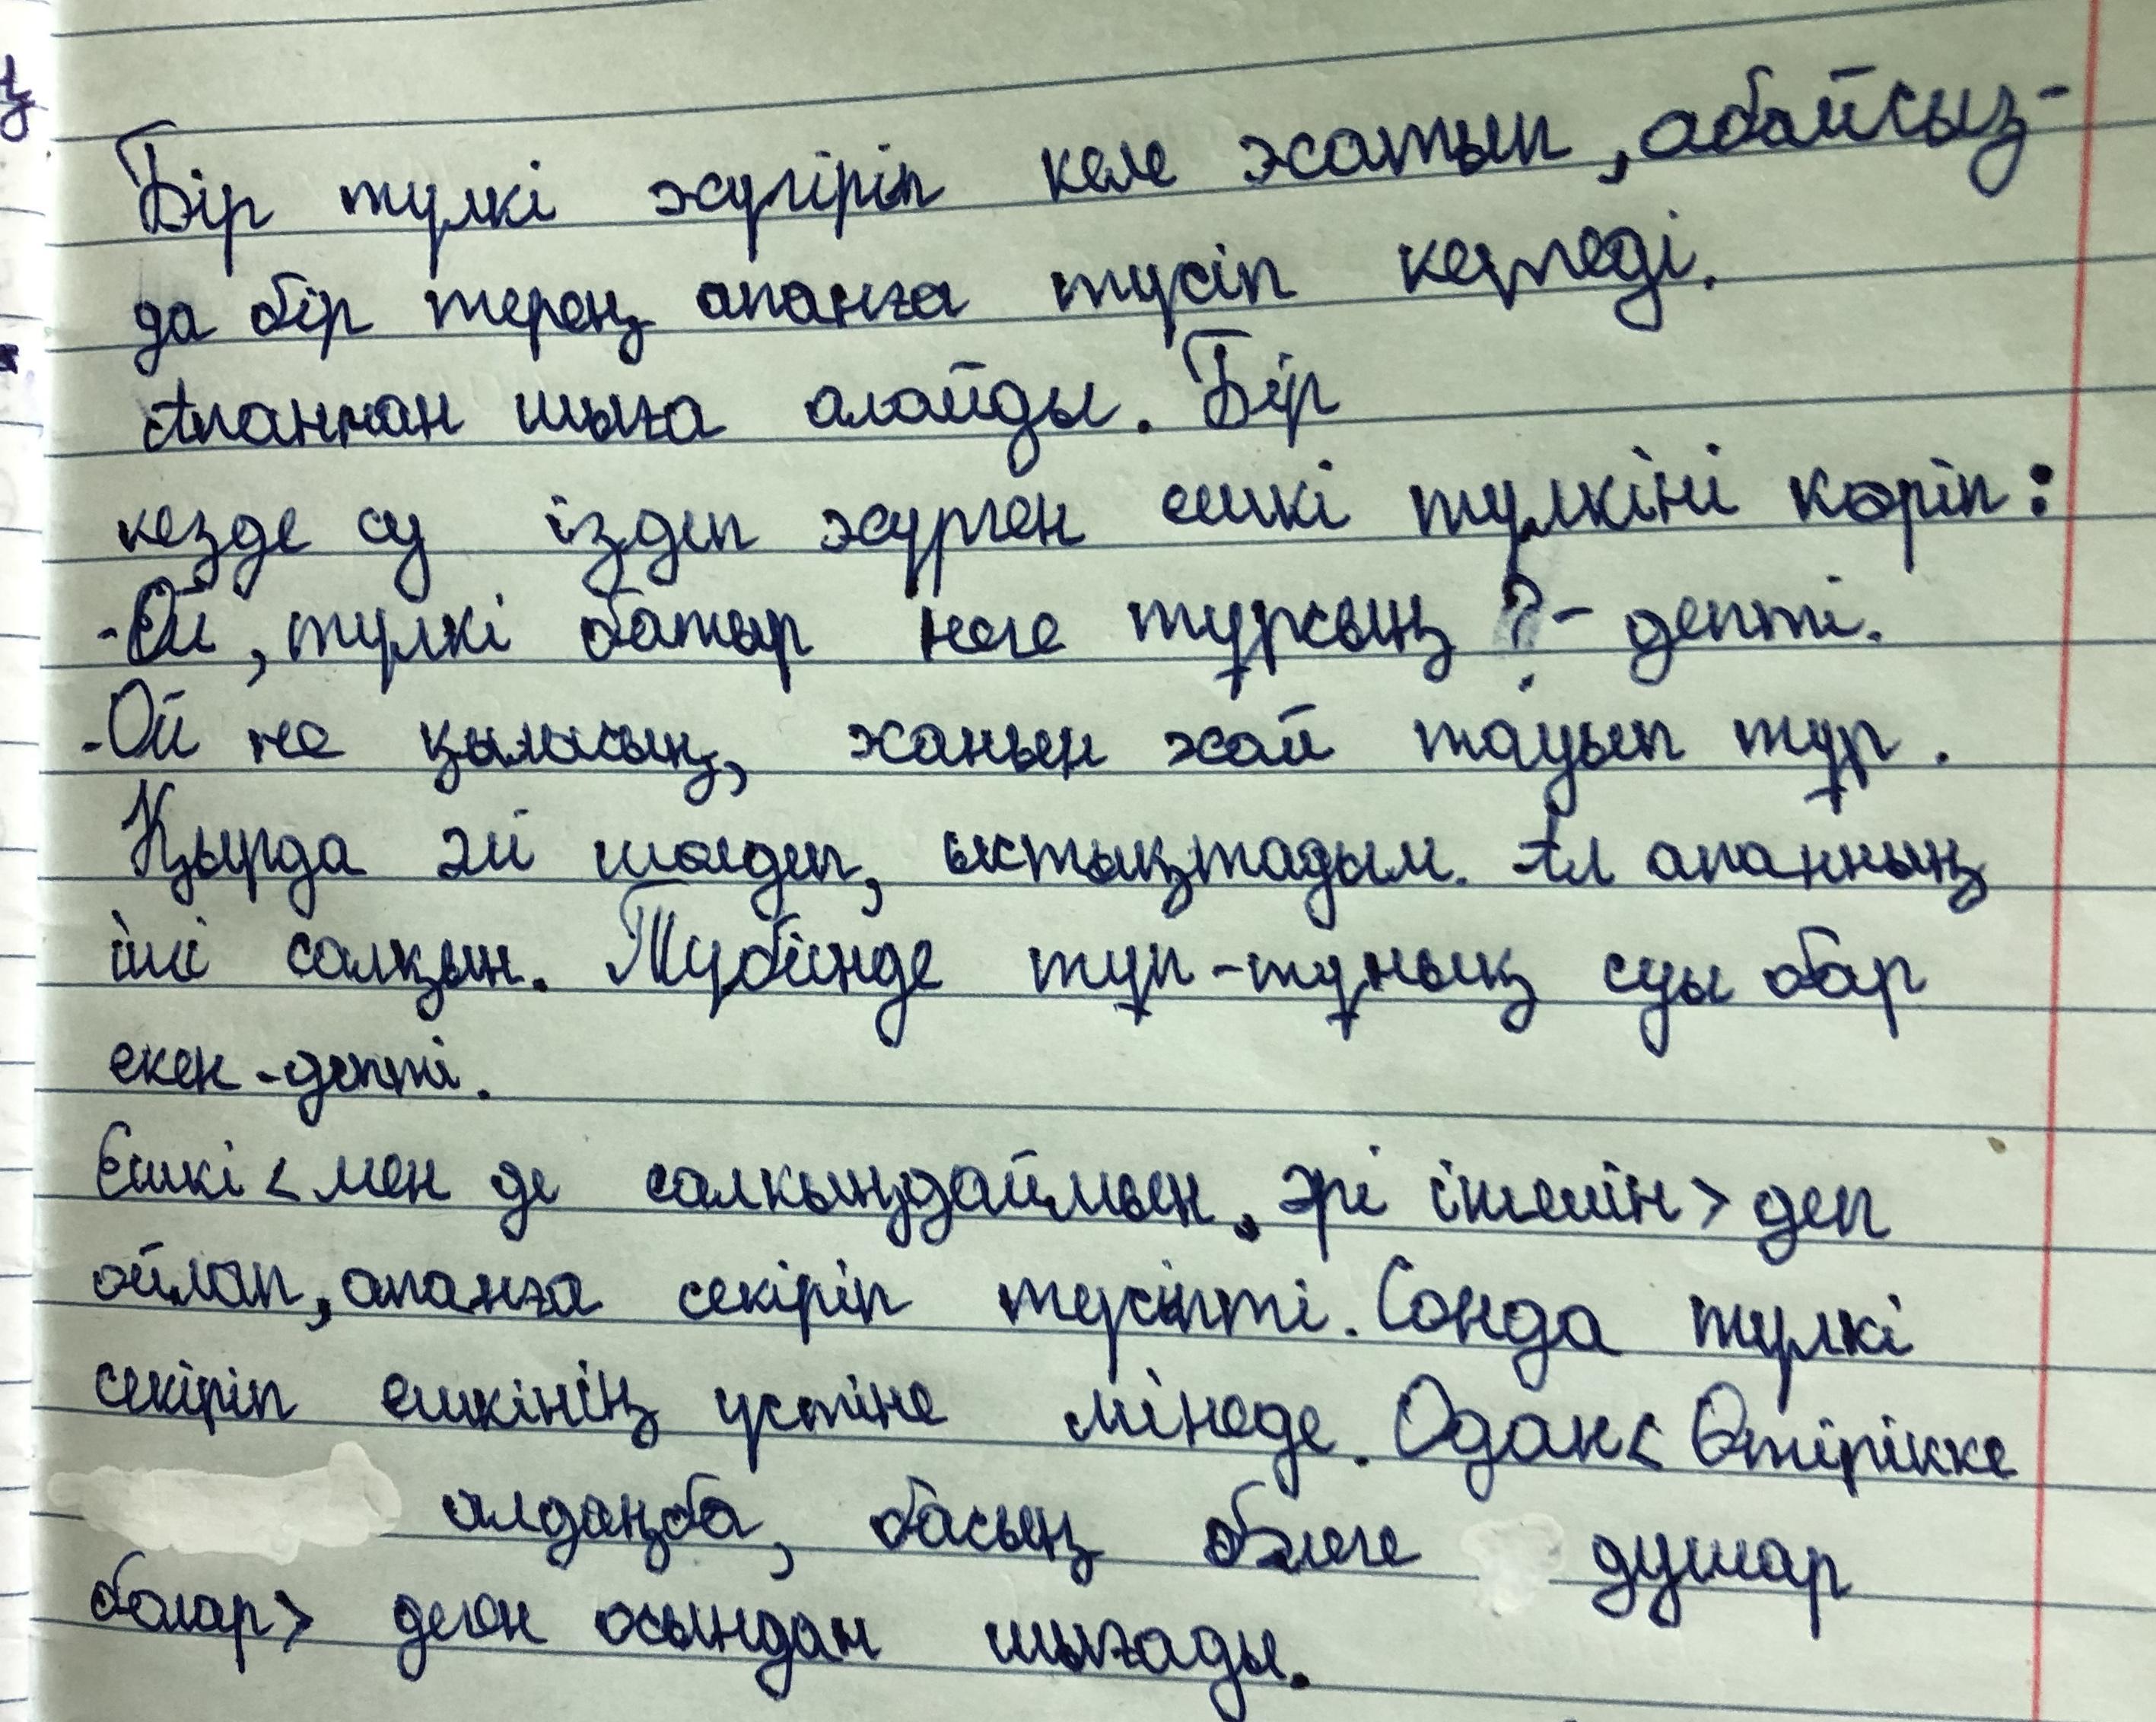 Бір түлкі жүгіріп келе жатып, абайсыз-
да бір терең апанға түсіп кетеді.
Апаннан шыға алайды. Бір
кезде су іздеп жүрген ешкі түлкіні көріп:
-Ой, түлкі батыр неге тұрсың?- депті.
-Ой не қыласың, жаным жай тауып тұр.
Қырда әй шөлдеп, ыстықтадым. Ал апанның
іші салқын. Түбінде тұп-тұнық суы бар
екен-депті.
Ешкі <мен де салкыңдаймын, әрі ішемін> деп
ойлап, апанға секіріп түсіпті. Сонда түлкі
секіріп ешкінің үстіне мінеде. Одан <Өтірікке
алдаңба, басың бәлеге душар
болар> деген осындан шығады.